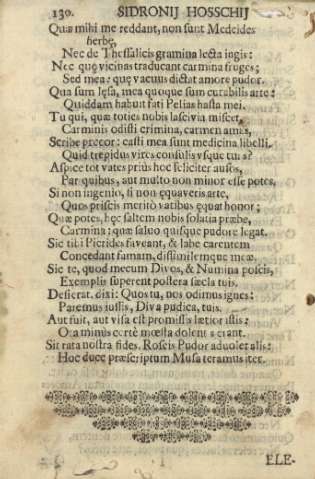 130. SIDRONIJ HOSSCHIJ
Quæ mihi me reddant, non sunt Medeides
herbę,
Nec de Thessalicis gramina lecta iugis:
Nec quę vicinas traducant carmina fruges;
Sed mea: quę vacuus dictat amore pudor.
Qua sum lęsa, mea quoque sum curabilis arte:
Quiddam habuit fati Pelias hasta mei.
Tu qui, quæ toties nobis lascivia miscet,
Carminis odisti crimina, carmen amas,
Scribe precor: casti mea sunt medicina libelli.
Quid trepidus vires consulis vsque tuas?
Aspice tot vates prius hoc feliciter ausos,
Par quibus, aut multo non minor esse potes.
Si non ingenio, si non equaveris arte,
Quos priscis merito vatibus equat honor;
Quæ potes, hęc saltem nobis solatia præbe,
Carmina: quæ salvo quisque pudore legat.
Sic tibi Pierides faveant, & labe carentem
Concedant famam, dissimilemque meæ.
Sic te, quod mecum Divos, & Numina poscis,
Exemplis superent postera sæcla tuis.
Desierat. dixi: Quos tu, nos odimus ignes:
Paremus iussis, Diva pudica, tuis.
Aut fuit, aut visa est promissis lætior istis:
Ora minus certè mœsta dolens erant.
Sit rata nostra fides. Roseis Pudor advolet alis:
Hoc duce præscriptum Musa teramus iter.
ELE-